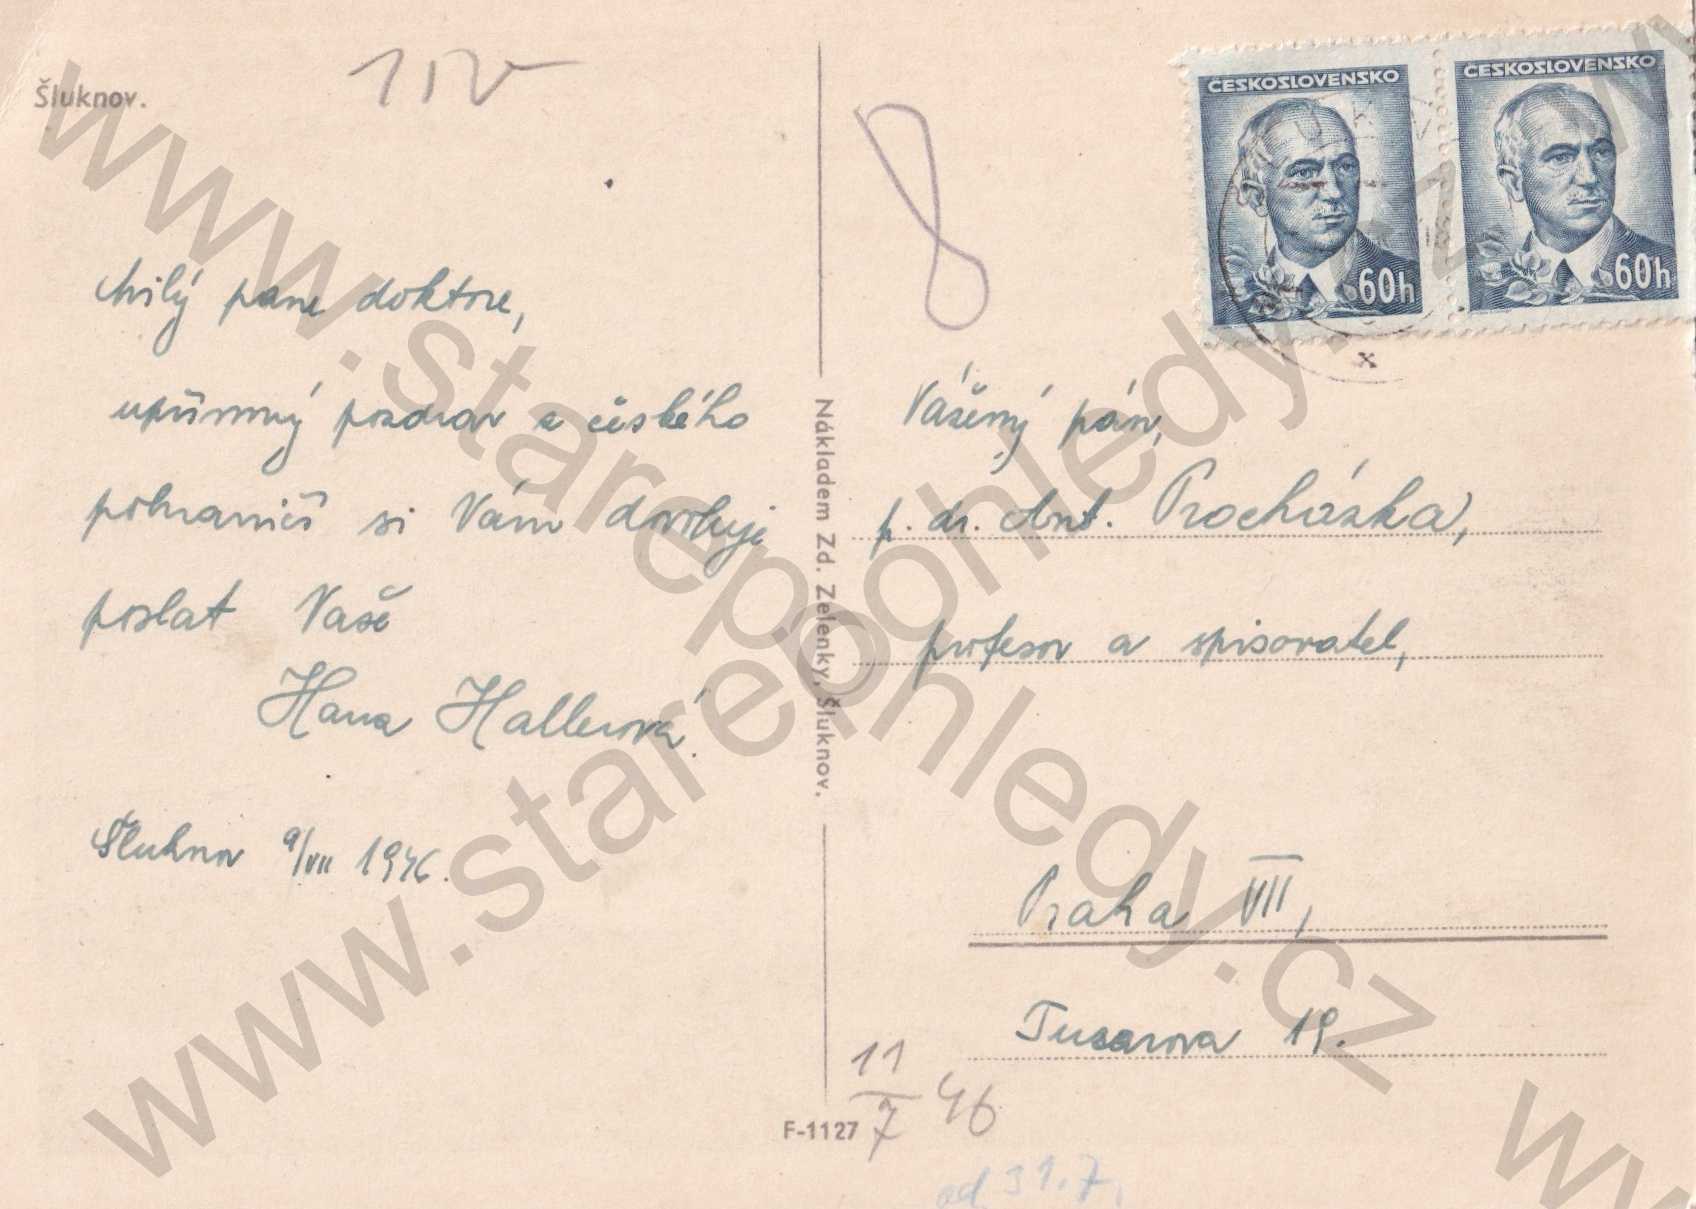 Šluknov.
ČESKOSLOVENSKO
60h
ČESKOSLOVENSKO
60h
8
Milý pane doktore,
upřímný pozdrav z českého
pohraničí si Vám dovoluje
poslat Vaše
Hana Hallerová.
Šluknov 9/VII 1946.
Nákladem Zd. Zelenky, Šluknov.
Vážený pán,
p. dr. Ant. Procházka,
profesor a spisovatel,
Praha VII,
Tusarova 19.
11/7 46
F-1127
od 31.7.
www.starepohledy.cz
www.starepohledy.cz